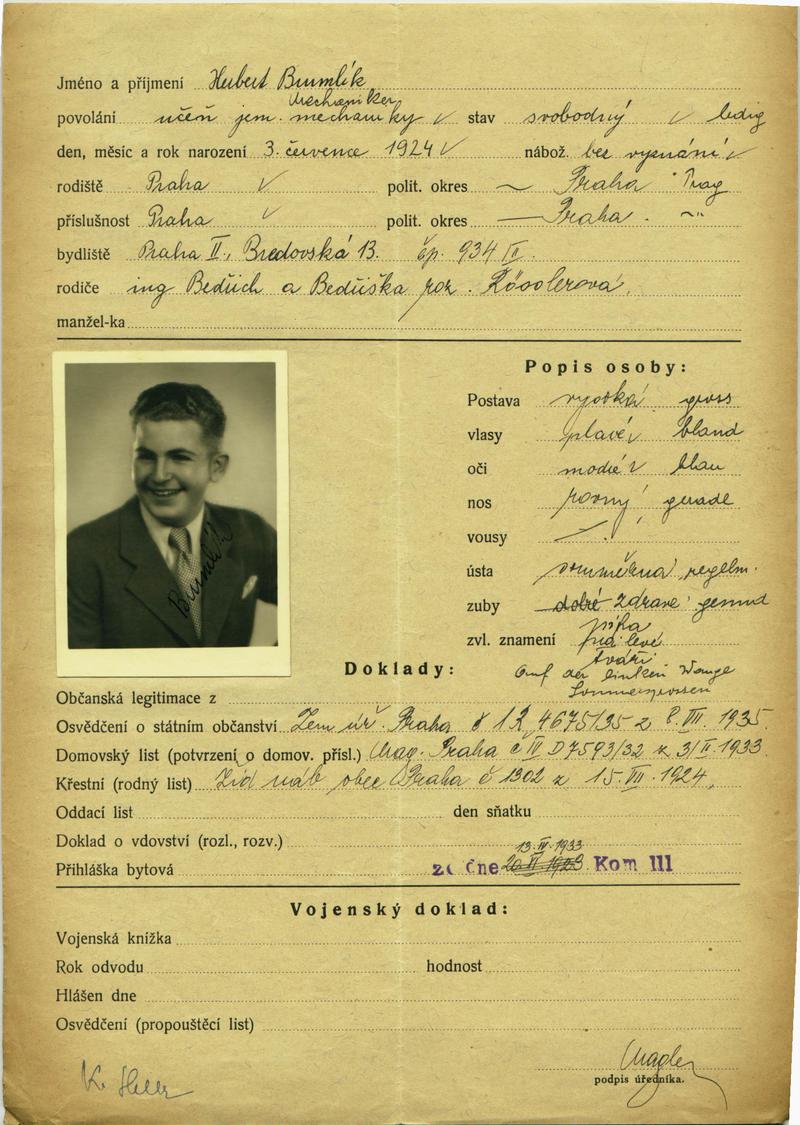 Jméno a příjmení Herbert Brumlík
Mechaniker
povolání učeň jem. mechaniky stav svobodný ledig
den, měsíc a rok narození 3. července 1924 nábož. bez vyznání
rodiště Praha polit. okres Praha Prag
příslušnost Praha polit. okres Praha
bydliště Praha II., Bredovská 13. čp. 934 II.
rodiče ing Bedřich a Bedřiška roz.
manžel-ka
Popis osoby:
Postava vysoká gross
vlasy plavé bland
oči modré blau
nos rovný gerade
vousy
ústa souměrná regelm.
zuby dobré zdravé gesund
zvl. znamení piha na levé
tváři
Auf der linken Wange
Sommersprossen
Brumlík
Doklady:
Občanská legitimace z
Osvědčení o státním občanství Zem. úř. Praha č 12,4675/35 z 8. VII. 1935
Domovský list (potvrzení o domov. přísl.) Mag. Praha č IV D 7593/32 z 3/II. 1933
Křestní (rodný list) Žid náb obec Praha č 1302 z 15. VII. 1924
Oddací list den sňatku
Doklad o vdovství (rozl., rozv.)
13. IV. 1933
Přihláška bytová ze dne Kom III
Vojenský doklad:
Vojenská knížka
Rok odvodu hodnost
Hlášen dne
Osvědčení (propouštěcí list)
podpis úředníka.